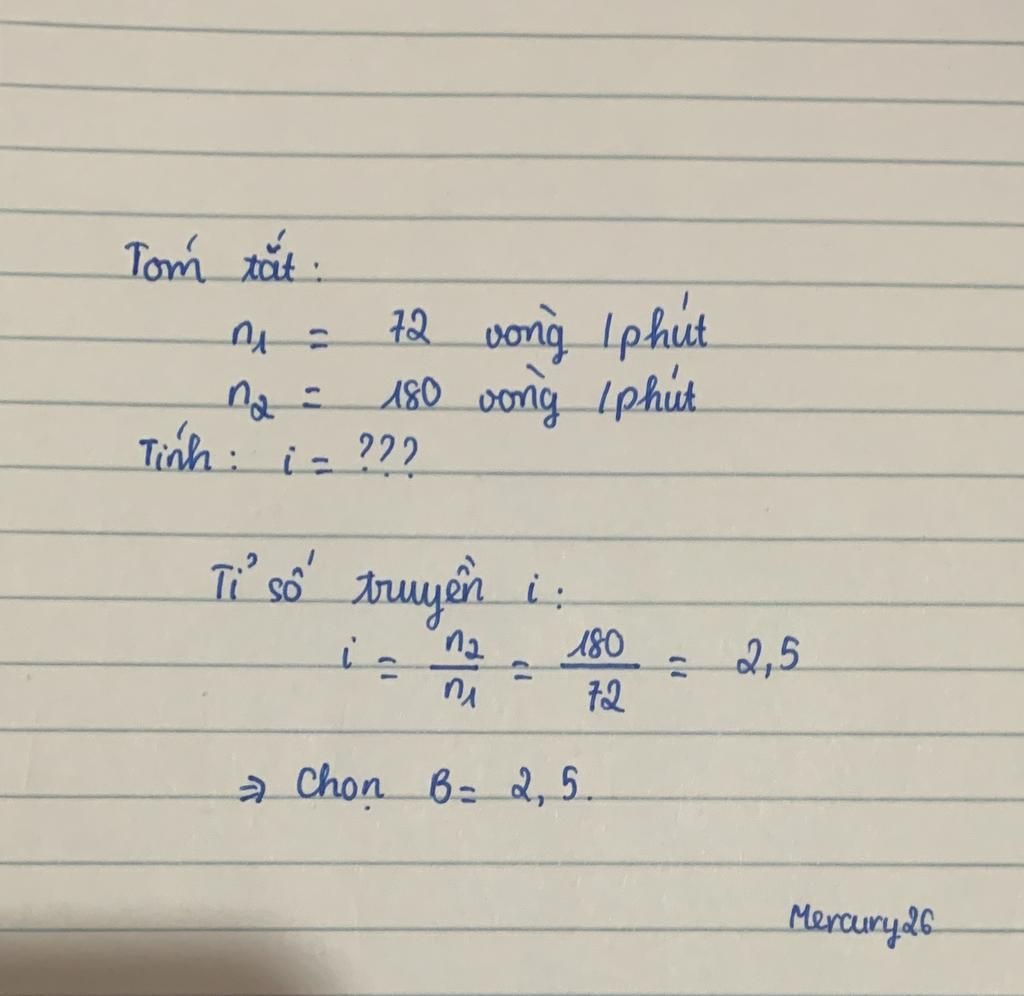 Tóm tắt:
n1 = 72 vòng /phút
n2 = 180 vòng /phút
Tính: i = ???
Tỉ số truyền i:
i = n2/n1 = 180/72 = 2,5
⇒ Chọn B= 2,5.
Mercury26